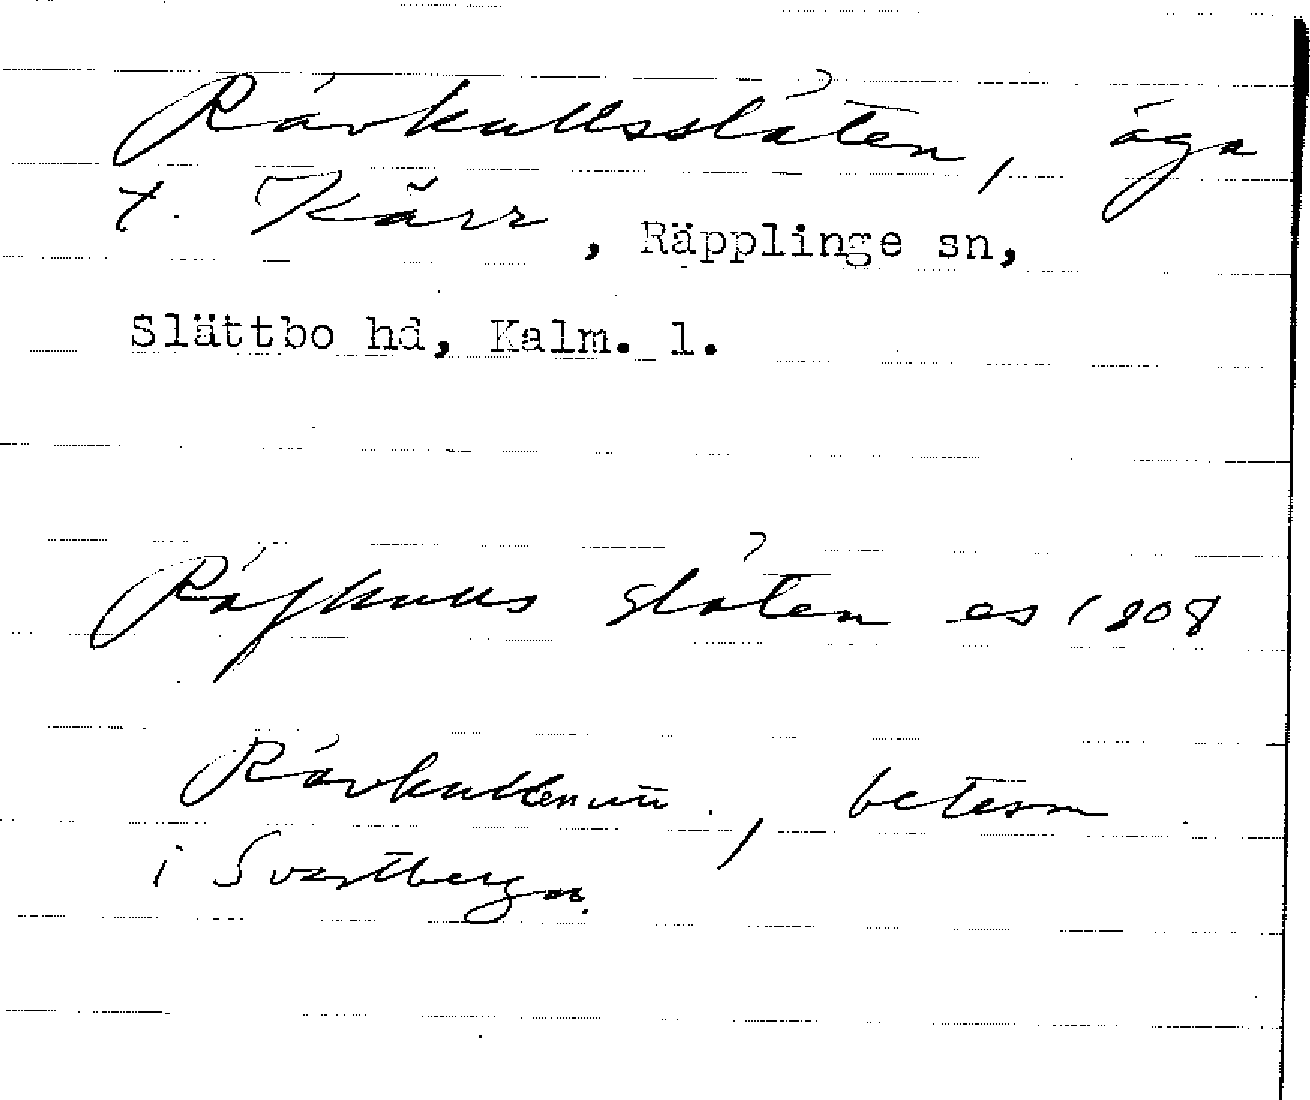 Rävkullsslåten, äga
t. Kärr, Räpplinge sn,
Slättbo hd, Kalm. l.
Räfkulls slåten es 1808
Rävkullen, betesm
i Svartberga.